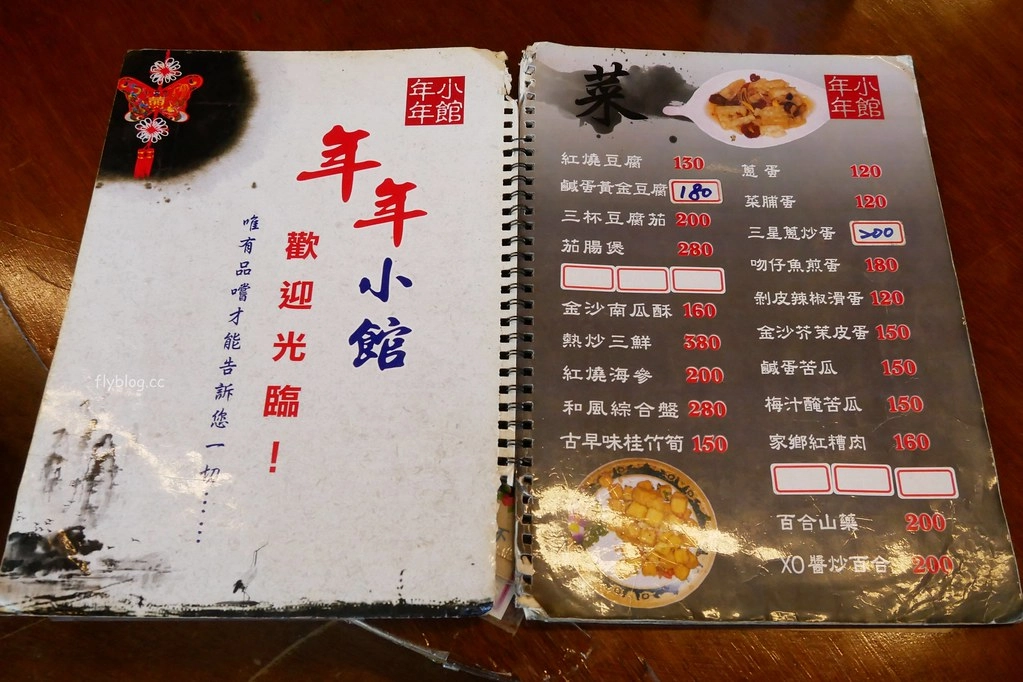 小館
年年
年年小館
歡迎光臨！
唯有品嚐才能告訴您一切……
flyblog.cc
菜
小館
年年
紅燒豆腐 130
鹹蛋黃金豆腐 180
三杯豆腐茄 200
茄腸煲 280
金沙南瓜酥 160
熱炒三鮮 380
紅燒海參 200
和風綜合盤 280
古早味桂竹筍 150
蔥蛋 120
菜脯蛋 120
三星蔥炒蛋 200
吻仔魚煎蛋 180
剝皮辣椒滑蛋 120
金沙芥茉皮蛋 150
鹹蛋苦瓜 150
梅汁醃苦瓜 150
家鄉紅糟肉 160
百合山藥 200
XO醬炒百合 200